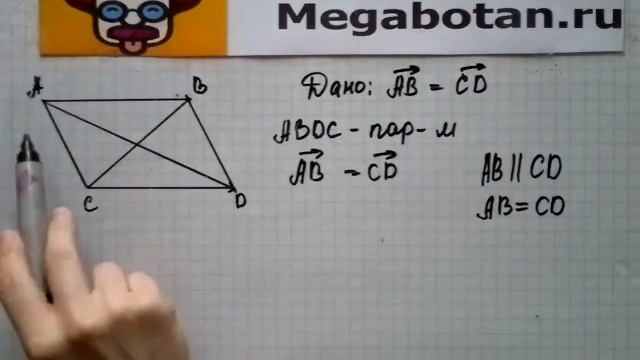 Megabotan.ru
A
B
C
D
Дано: AB = CD
ABDC - пар-м
AB = CD
AB || CD
AB = CD